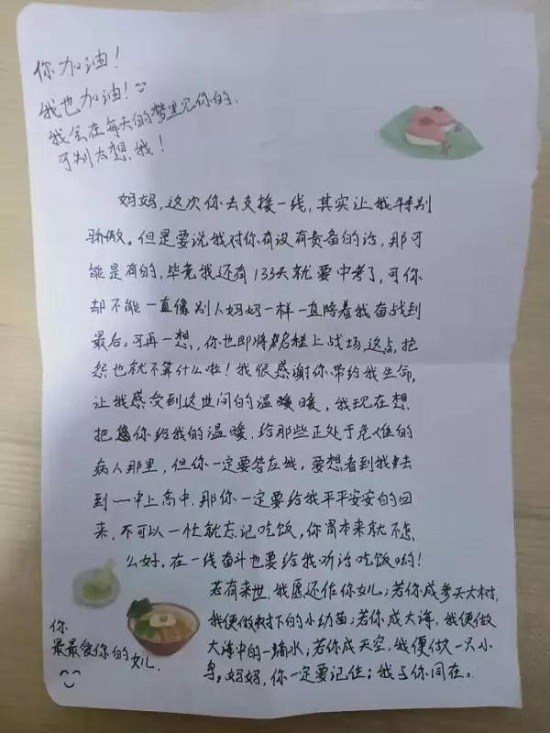 你加油！
我也加油！
我会在每天的梦里见你的，
可别太想我！
妈妈，这次你去支援一线，其实让我特别
骄傲。但是要说我对你有没有责备的话，那可
能是有的，毕竟我还有133天就要中考了，可你
却不能一直像别人妈妈一样一直陪着我奋战到
最后。可再一想，你也即将启程上战场，这点抱
怨也就不算什么啦！我很感谢你带给我生命，
让我感受到这世间的温暖暖，我现在想
把你给我的温暖，给那些正处于危难的
病人那里，但你一定要答应我，要想看到我去
到一中上高中，那你一定要给我平平安安的回
来，不可以一忙就忘记吃饭，你胃本来就不怎
么好。在一线奋斗也要给我听话吃饭哟！
若有来世，我愿还作你女儿；若你成参天大树，
我便做树下的小幼苗；若你成大海，我便做
大海中的一滴水；若你成天空，我便做一只小
鸟，妈妈，你一定要记住；我与你同在。
你
最最爱你的女儿